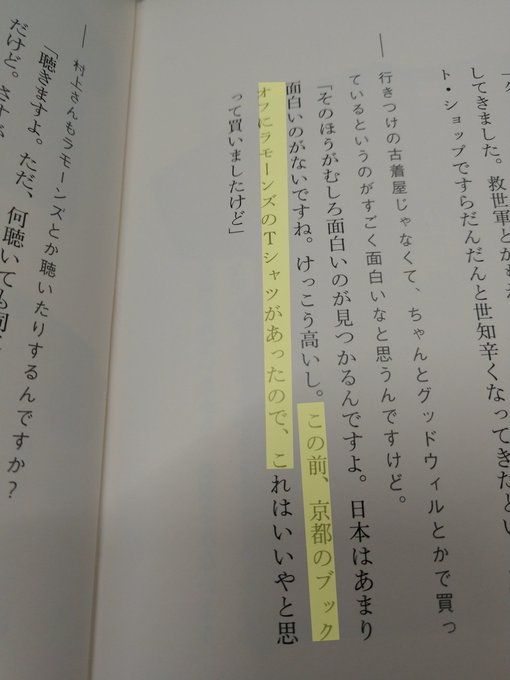 してきました。救世軍とかも
ト・ショップですらだんだんと世知辛くなってきたとい
――行きつけの古着屋じゃなくて、ちゃんとグッドウィルとかで買っ
ているというのがすごく面白いなと思うんですけど。
「そのほうがむしろ面白いのが見つかるんですよ。日本はあまり
面白いのがないですね。けっこう高いし。この前、京都のブック
オフにラモーンズのTシャツがあったので、これはいいやと思
って買いましたけど」
――村上さんもラモーンズとか聴いたりするんですか?
「聴きますよ。ただ、何聴いても同
だけど。さす